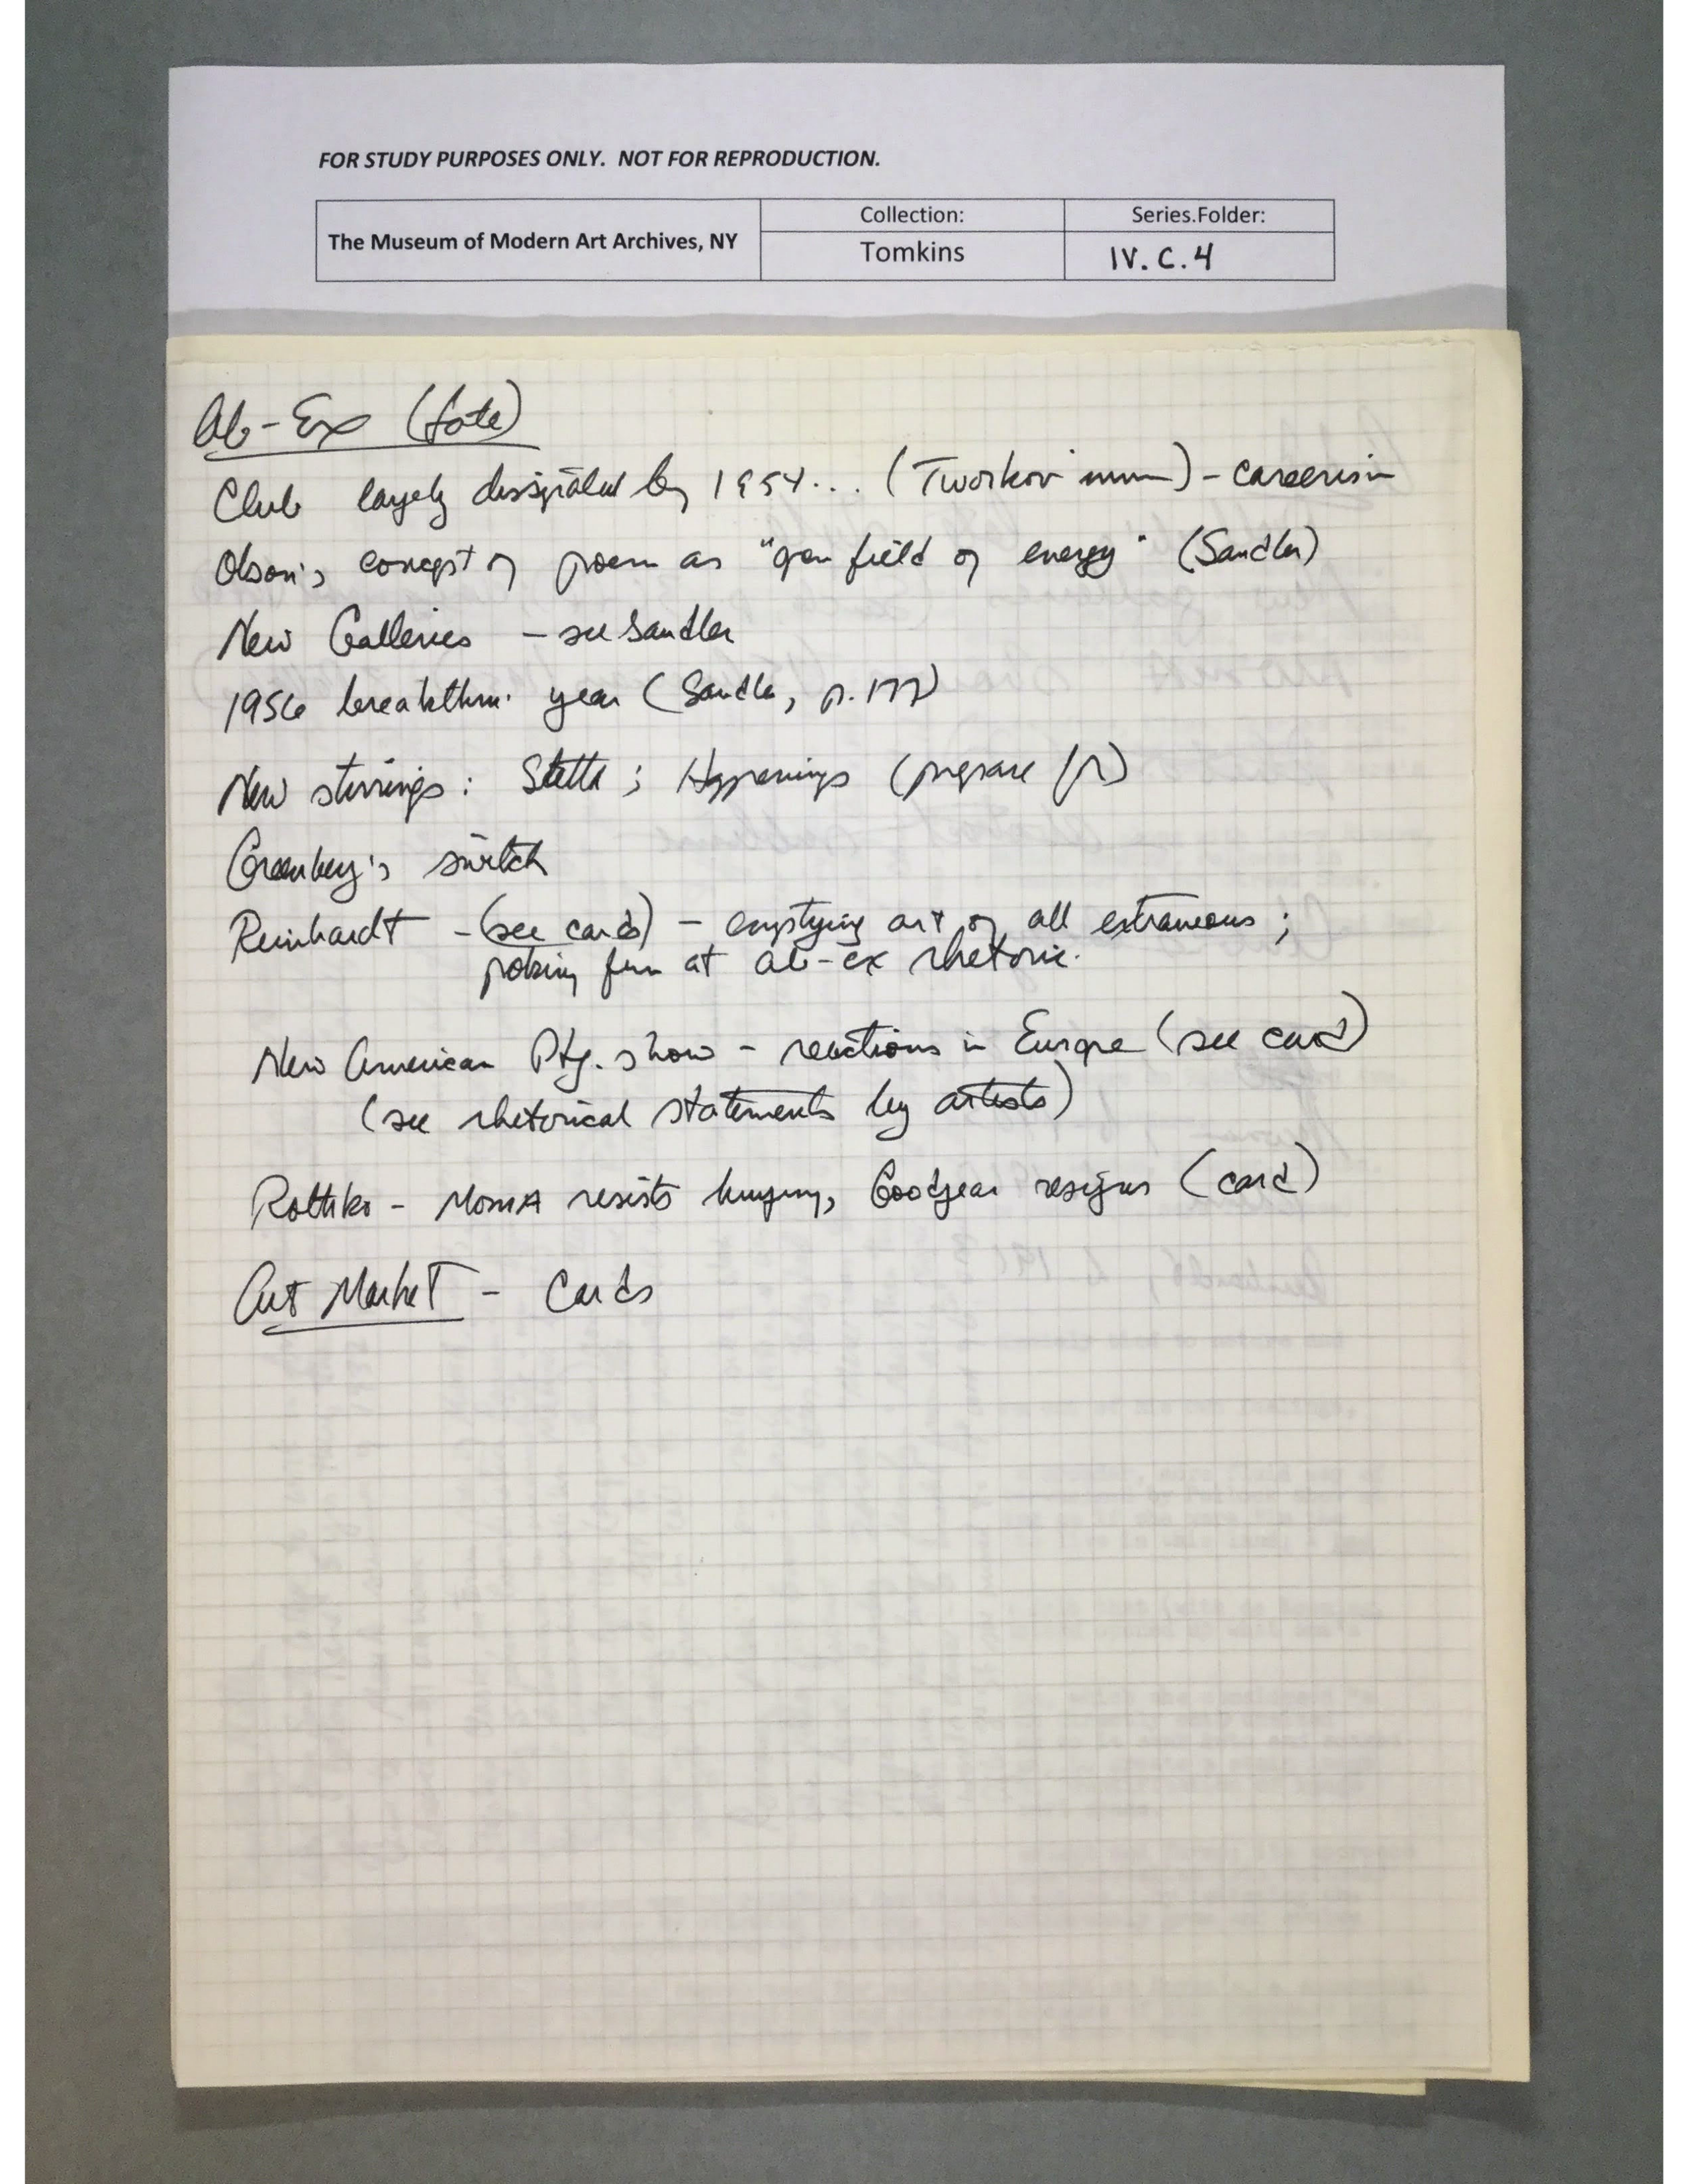 FOR STUDY PURPOSES ONLY. NOT FOR REPRODUCTION.
The Museum of Modern Art Archives, NY
Collection:
Tomkins
Series.Folder:
IV.C.4
Ab-Ex (late)
Club largely dissipated by 1954... (Tworkov) - careerism
Olson's concept of poem as "open field of energy" (Sandler)
New Galleries - see Sandler
1956 breakthru. year (Sandler, p. 177)
New stirrings: Stella; Happenings (prepare for)
Greenberg's switch
Reinhardt - (see cards) - emptying art of all extraneous;
poking fun at ab-ex rhetoric.
New American Ptg. show - reactions in Europe (see card)
(see rhetorical statements by artists)
Rothko - MOMA resists buying, Goodyear resigns (card)
Art Market - Cards